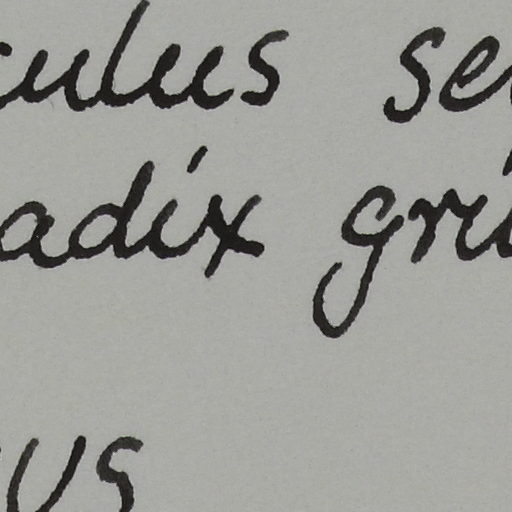 culus se
adix gri
us